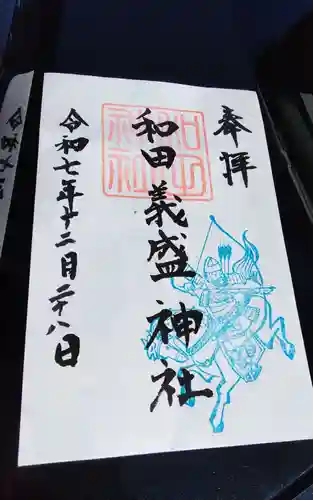 奉拝
和田義盛神社
令和七年廿二月二十八日